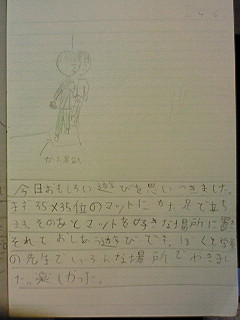 今日おもしろい遊びを思いつきました。
まず35×35位のマットにかた足で立ち
ます。そのあとマットを好きな場所に置き
それておしあう遊びです。ぼくと
の先生でいろんな場所でやきまし
た。楽しかった。